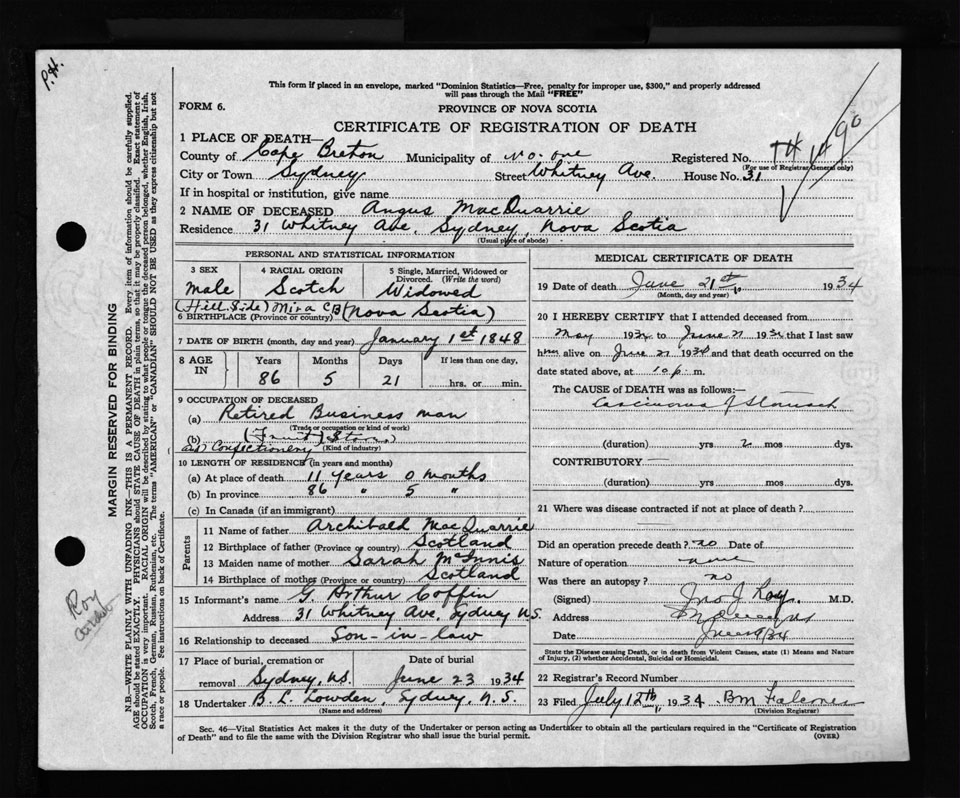 P.H.
This form if placed in an envelope, marked "Dominion Statistics—Free, penalty for improper use, $300," and properly addressed
will pass through the Mail "FREE"
FORM 6.
PROVINCE OF NOVA SCOTIA
CERTIFICATE OF REGISTRATION OF DEATH
1 PLACE OF DEATH—
County of Cape Breton Municipality of No. one Registered No.
(For use of Registrar General only)
City or Town Sydney Street Whitney Ave. House No. 31
If in hospital or institution, give name
2 NAME OF DECEASED Angus MacQuarrie
Residence 31 Whitney Ave, Sydney, Nova Scotia
(Usual place of abode)
PERSONAL AND STATISTICAL INFORMATION
3 SEX 4 RACIAL ORIGIN 5 Single, Married, Widowed or
Divorced. (Write the word)
Male Scotch Widowed
(Hill Side) Mira CB (Nova Scotia)
6 BIRTHPLACE (Province or country)
7 DATE OF BIRTH (month, day and year) January 1st 1848
8 AGE IN Years Months Days If less than one day,
86 5 21 hrs. or min.
9 OCCUPATION OF DECEASED
(a) Retired Business man
(Trade or occupation or kind of work)
(b) (Fruit) Store)
and Confectionery (Kind of industry)
10 LENGTH OF RESIDENCE (in years and months)
(a) At place of death 11 years 0 months
(b) In province 86 " 5 "
(c) In Canada (if an immigrant)
Parents
11 Name of father Archibald MacQuarrie
12 Birthplace of father (Province or country) Scotland
13 Maiden name of mother Sarah McInnis
14 Birthplace of mother (Province or country) Scotland
15 Informant's name G Arthur Coffin
Address 31 Whitney Ave, Sydney N.S.
16 Relationship to deceased Son-in-law
17 Place of burial, cremation or Date of burial
removal Sydney, NS. June 23 1934
18 Undertaker B. L. Lowden, Sydney, N.S.
(Name and address)
MEDICAL CERTIFICATE OF DEATH
19 Date of death June 21st 1934
(Month, day and year)
20 I HEREBY CERTIFY that I attended deceased from
May 1934 to June 21 1934 that I last saw
him alive on June 21 1934 and that death occurred on the
date stated above, at 10 p. m.
The CAUSE OF DEATH was as follows:—
Carcinoma of Stomach
(duration) yrs 2 mos dys.
CONTRIBUTORY
(duration) yrs. mos. dys.
21 Where was disease contracted if not at place of death?
Did an operation precede death? no Date of
Nature of operation none
Was there an autopsy? no
(Signed) Jno J Roy. M.D.
Address
Date
State the Disease causing Death, or in death from Violent Causes, state (1) Means and Nature
of Injury, (2) whether Accidental, Suicidal or Homicidal.
22 Registrar's Record Number
23 Filed July 12th 1934. BM Falconer
(Division Registrar)
Sec. 46—Vital Statistics Act makes it the duty of the Undertaker or person acting as Undertaker to obtain all the particulars required in the "Certificate of Registration
of Death" and to file the same with the Division Registrar who shall issue the burial permit. (OVER)
MARGIN RESERVED FOR BINDING
N.B.—WRITE PLAINLY WITH UNFADING INK—THIS IS A PERMANENT RECORD. Every item of information should be carefully supplied.
AGE should be stated EXACTLY. PHYSICIANS should STATE CAUSE OF DEATH in plain terms, so that it may be properly classified. Exact statement of
OCCUPATION is very important. RACIAL ORIGIN will be described by stating to what people or tongue the deceased person belonged, whether English, Irish,
Scotch, French, German, Russian, Ruthenian, etc. The terms "AMERICAN" or "CANADIAN" SHOULD NOT BE USED as they express citizenship but not
a race or people. Fee instructions on back of Certificate.
Roy